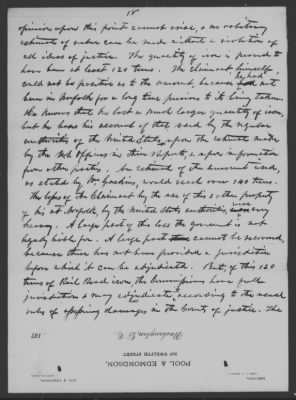 15
opinion upon this point cannot arise, & no arbitrary
estimate of value can be made without a violation of
all ideas of justice. The quantity of iron is proved to
have been at least 120 tons. The Claimant himself,
could not be positive as to the amount, because he had not
been in Norfolk for a long time previous to its being taken.
He knows that he lost a much larger quantity of iron,
but he bases his account of that used by the regular
authorities of the United States upon the estimate made
by the Officers in their report, & upon information
from other parties. An estimate of the amount used,
as stated by Mr Gaskins, would reach over 140 tons.
The loss of the Claimant by the use of this & other property
of his at Norfolk, by the United States authorities, were very
heavy. A large part of this loss the government is not
legally liable for. A large part cannot be recovered,
because there has not been provided a jurisdiction
before which it can be adjudicated. But, of this 120
tons of Rail Road iron, the commissioners have full
jurisdiction & may adjudicate, according to the usual
rules of assessing damages in the Courts of justice. The
187
Washington, D. C.
TWELFTH STREET.
POOL & EDMONDSON,